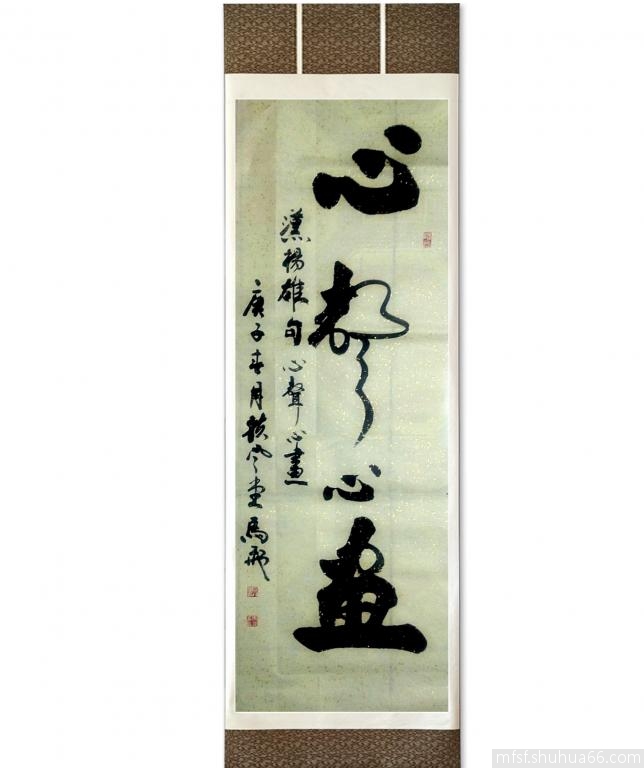 心聲心畫
漢楊雄句心聲心畫
庚子春月扶風堂馬飛
mfsf.shuhua66.com